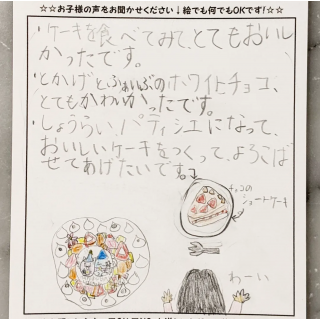 ☆☆お子様の声をお聞かせください↓絵でも何でもOKです!☆☆
・ケーキを食べてみて、とてもおいし
かったです。
・とかげとふぁいぶのホワイトチョコ、
とてもかわいかったです。
・しょうらい、パティシエになって、
おいしいケーキをつくって、よろこば
せてあげたいです。
チョコの
ショートケーキ
わーい